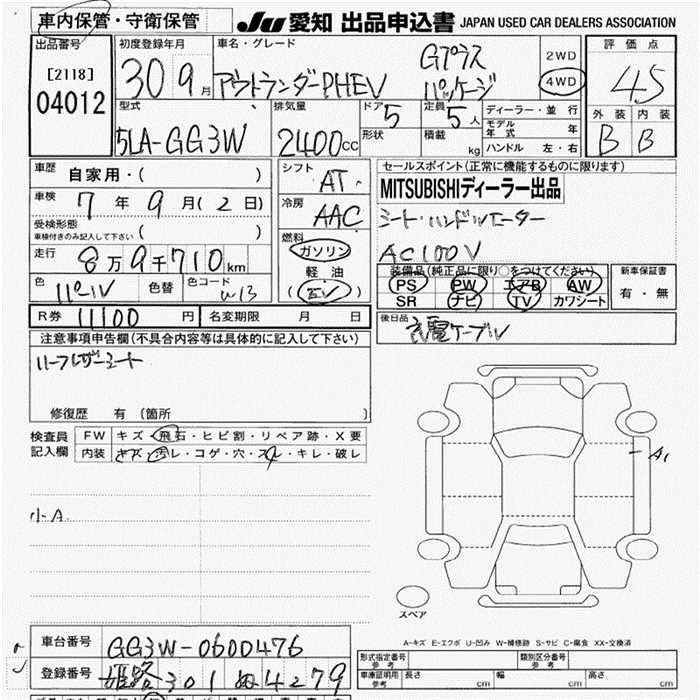 車内保管・守衛保管
JU 愛知 出品申込書 JAPAN USED CAR DEALERS ASSOCIATION
出品番号
[2118]
04012
初度登録年月
30 9月
車名・グレード
アウトランダーPHEV
Gプラス
パッケージ
2WD
4WD
評価点
4.5
外装 内装
B B
型式
5LA-GG3W
排気量
2400cc
ドア 5
形状
定員 5人
積載 kg
ディーラー・並行
モデル年式 年
ハンドル 左・右
車歴 自家用・( )
車検 7年9月(2日)
受検形態
車検付きのみ記入して下さい ( )
走行 8万9千710km
色 パール 色替 色コード W13
シフト AT
冷房 AAC
燃料
ガソリン
軽油
(EV)
R券 11100円 名変期限 月 日
セールスポイント(正常に機能するものに限ります)
MITSUBISHIディーラー出品
シート・ハンドルヒーター
AC100V
装備品(純正品に限り○をつけてください)
PS PW エアB AW
SR ナビ TV カワシート
新車保証書
有・無
後日品
充電ケーブル
注意事項申告欄(不具合内容等は具体的に記入して下さい)
ハーフレザーシート
修復歴 有(箇所 )
検査員記入欄
FW キズ・飛石・ヒビ割・リペア跡・X要
内装 キズ・汚レ・コゲ・穴・スレ・キレ・破レ
小A
A1
スペア
A-キズ E-エクボ U-凹み W-補修跡 S-サビ C-腐食 XX-交換済
車台番号 GG3W-0600476
登録番号 姫路 301 ぬ 4279
形式指定番号 参考
類別区分番号 参考
車庫証明用 参考 長さ cm 幅 cm 高さ cm